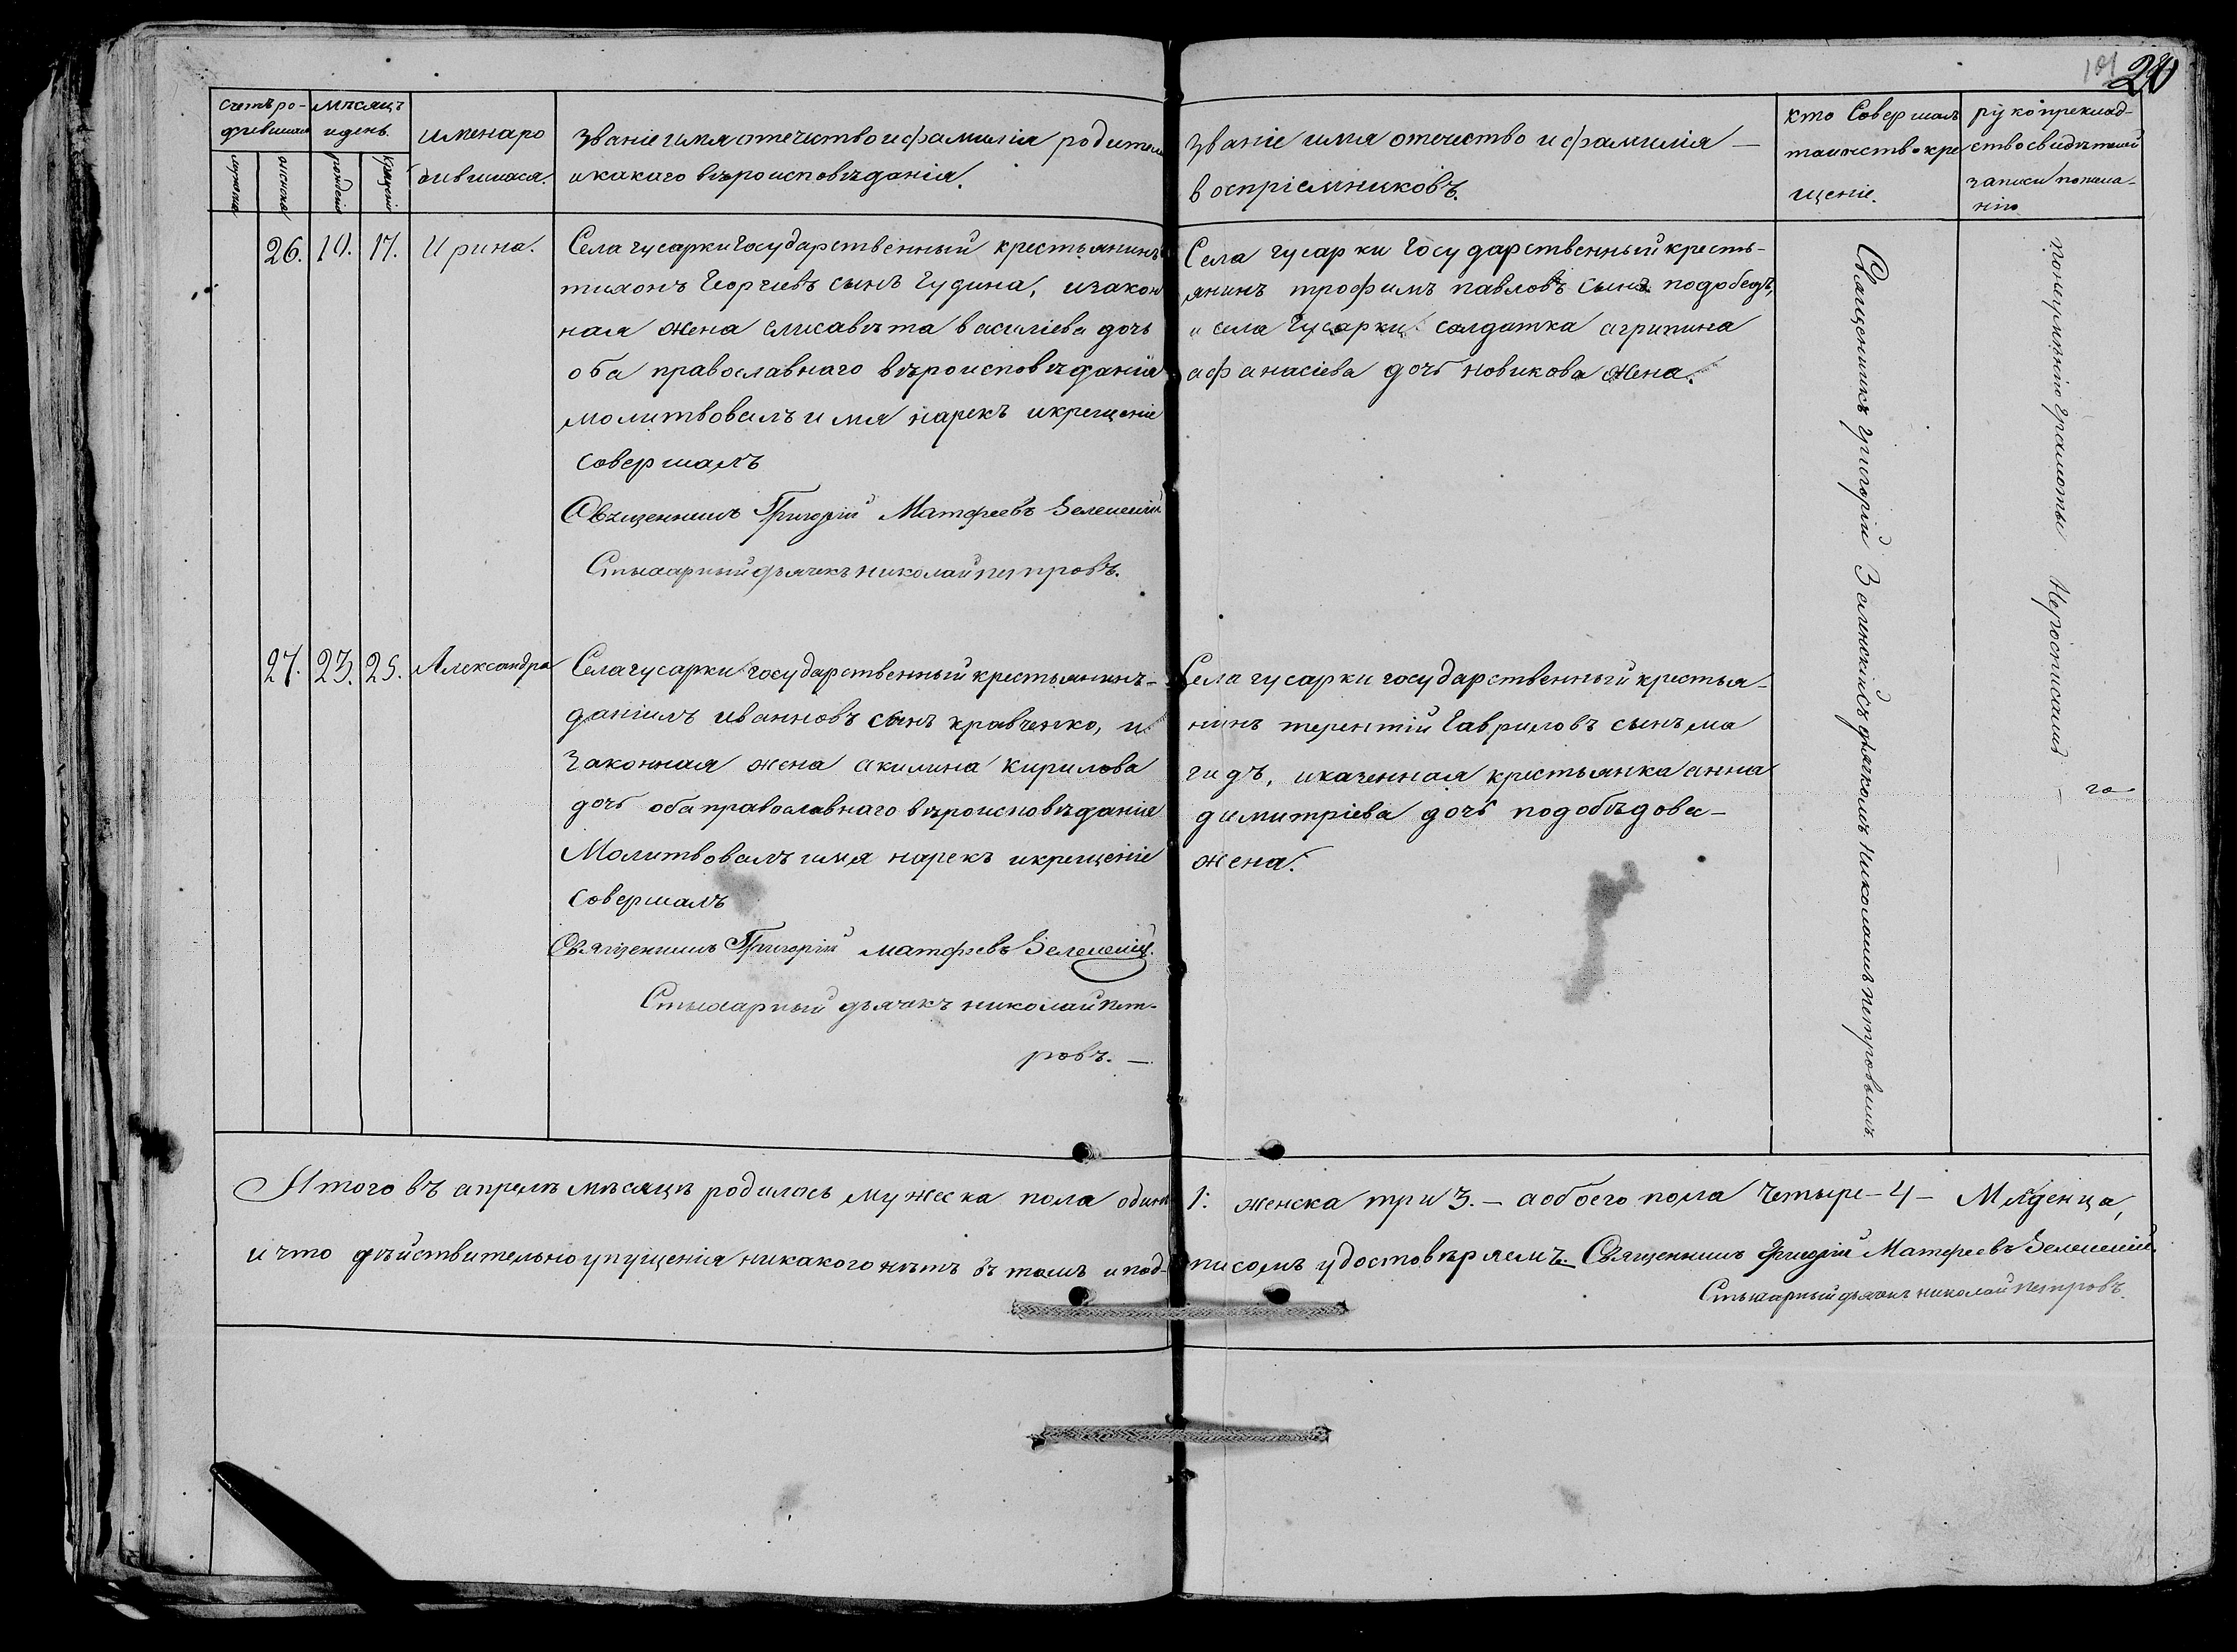 101 20
счетъ ро-
дившихся
мѣсяцъ
и день.
имена ро
дившихся.
званіе имя отечество и фамилія родителей
и какаго вѣроисповѣданія.
званіе имя отечество и фамилія —
воспріемниковъ.
кто Совершалъ
таинство кре
щеніе.
рукоприклад-
ство свидѣтелей
записи по жела-
нію
26. 10. 17. Ирина.
Села гусарки государственный крестьянинъ
тихонъ Георгіевъ сынъ Гудина, и закон
ная жена елисавѣта василіева дочь
оба православнаго вѣроисповѣданія
молитвовалъ имя нарекъ и крещеніе
совершалъ
Священникъ Григорій Матфеевъ Зеленскій
Стихарный дьячекъ николай петровъ.
Села гусарки Государственный кресть-
янинъ трофимъ павловъ сынъ подобедъ,
и села Гусарки салдатка агрипина
афанасіева дочь новикова жена.
Священникъ григорій Зеленскій съ дьячкомъ Николаемъ петровымъ.
По неумѣнію грамоты. Неросписались
го
27. 23. 25. Александра
Села гусарки государственный крестьянинъ-
даніилъ ивановъ сынъ кравченко, и
законная жена акилина кирилова
дочь оба православнаго вѣроисповѣданія
Молитвовалъ имя нарекъ и крещеніе
совершалъ
Священникъ Григорій матфеевъ Зеленскій.
Стихарный дьячекъ николай пет-
ровъ. —
Села гусарки государственный крестья-
нинъ терентій Гавриловъ сынъ ма
гидъ, и казенная крестьянка анна
димитріева дочь подобѣдова-
жена.
Итого въ апрелѣ мѣсяцѣ родилось мужеска пола одинъ 1: женска три 3. — а обоего пола четыре - 4 - Млденца,
и что дѣйствительно упущенія никакого нѣтъ въ томъ и под-писомъ удостовѣряемъ. Священникъ Григорій Матфеевъ Зеленскій.
Стихарный дьячекъ николай петровъ.